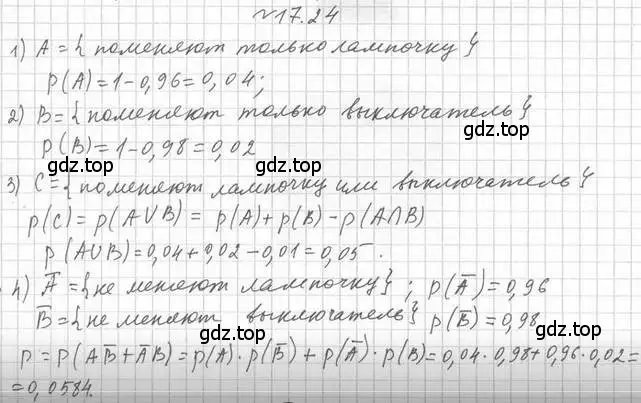 №17.24
1) A = { поменяют только лампочку }
p(A)=1-0,96=0,04;
2) B={поменяют только выключатель}
p(B)=1-0,98=0,02
gdz.top
gdz.top
3) C={поменяют лампочку или выключатель}
p(C)= p(A∪B)= p(A)+p(B)-p(A∩B)
gdz.top
p(A∪B)=0,04+0,02-0,01=0,05.
gdz.top
4) A̅={не меняют лампочку}; p(A̅)=0,96
B̅={не меняют выключатель} p(B̅)=0,98
gdz.top
gdz.top
p=P(AB̅+A̅B)=p(A)·p(B̅)+p(A̅)·p(B)=0,04·0,98+0,96·0,02=
=0,0584.